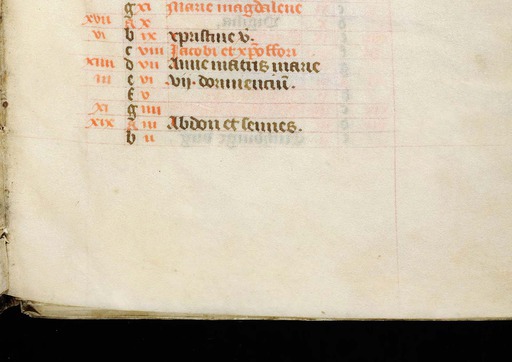 g xi Marie magdalene
xvii A x
vi b ix xpristine v.
c viii Jacobi et xpoffori
xiiii d vii Anne matris marie
iii e vi vii. dormienciu.
f v
xi g iiii
xix A iii Abdon et sennes.
b ii